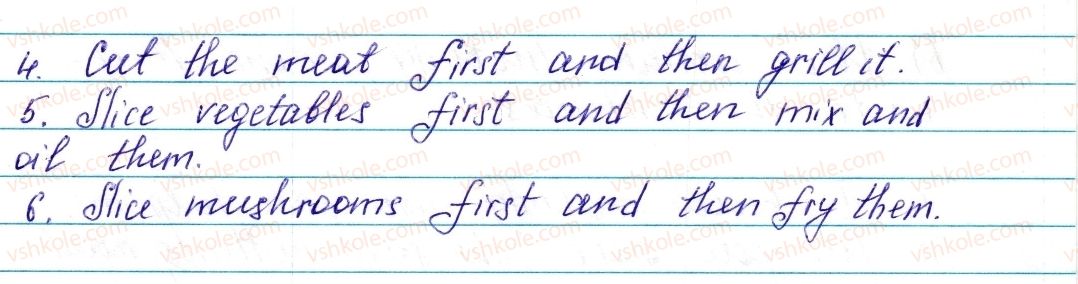 4. Cut the meat first and then grill it.
5. Slice vegetables first and then mix and
oil them.
6. Slice mushrooms first and then fry them.